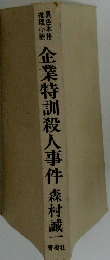 異色本格
推理小説
企業特訓殺人事件
森村誠一
青樹社